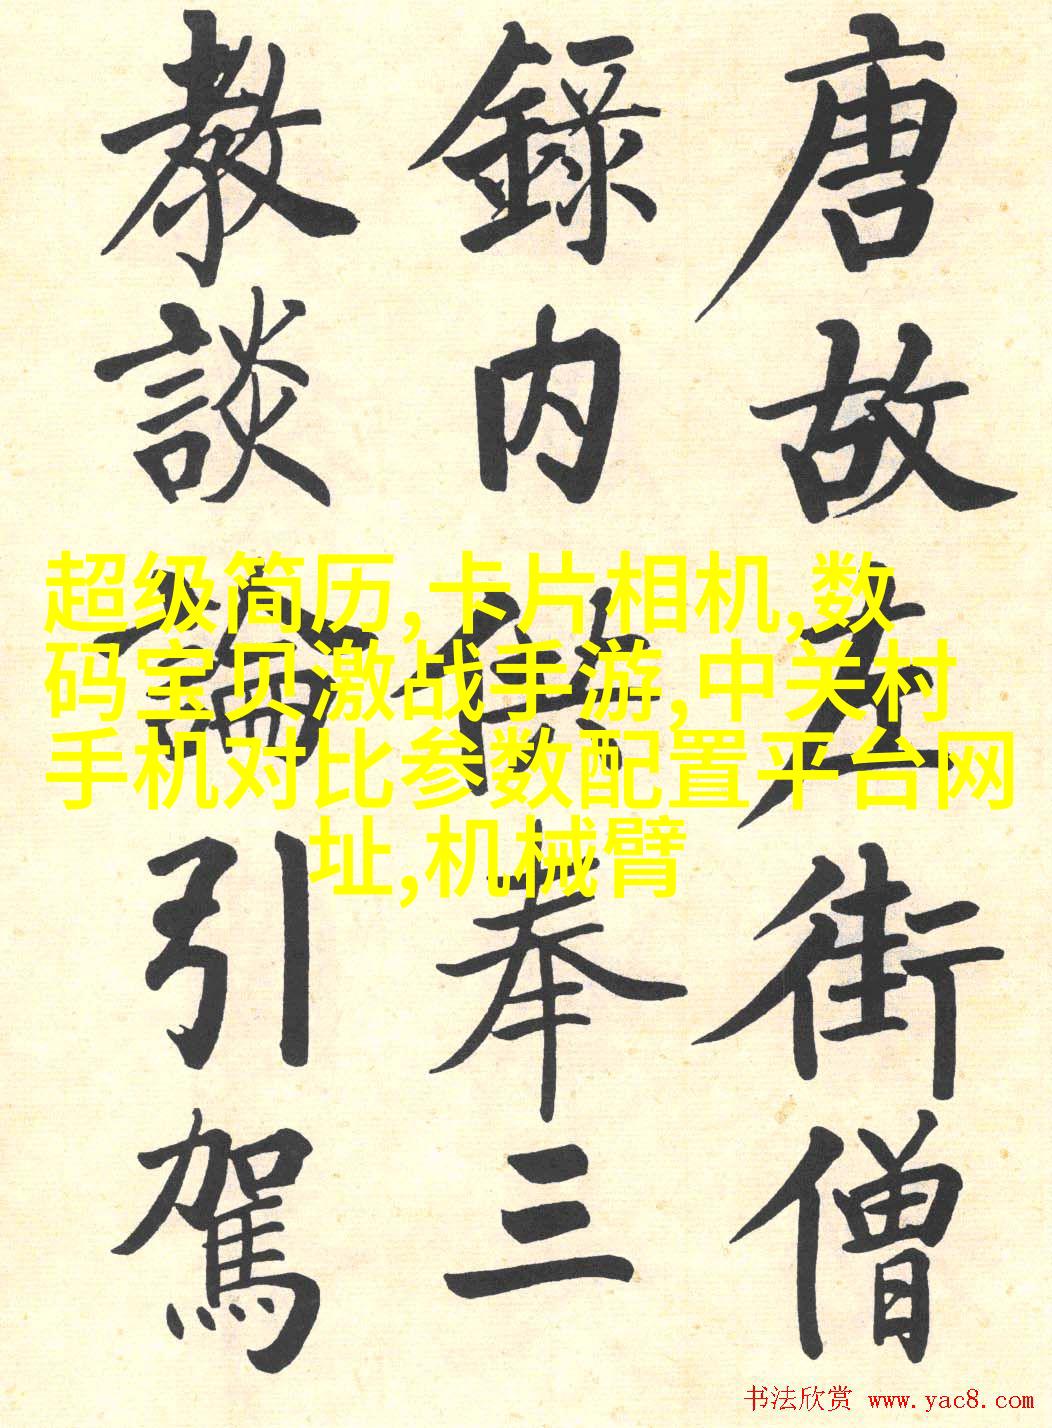 唐故左街僧
録内供奉三
教談論引駕
超级简历,卡片相机,数
码宝贝激战手游,中关村
手机对比参数配置平台网
址,机械臂
书法欣赏 www.yac8.com